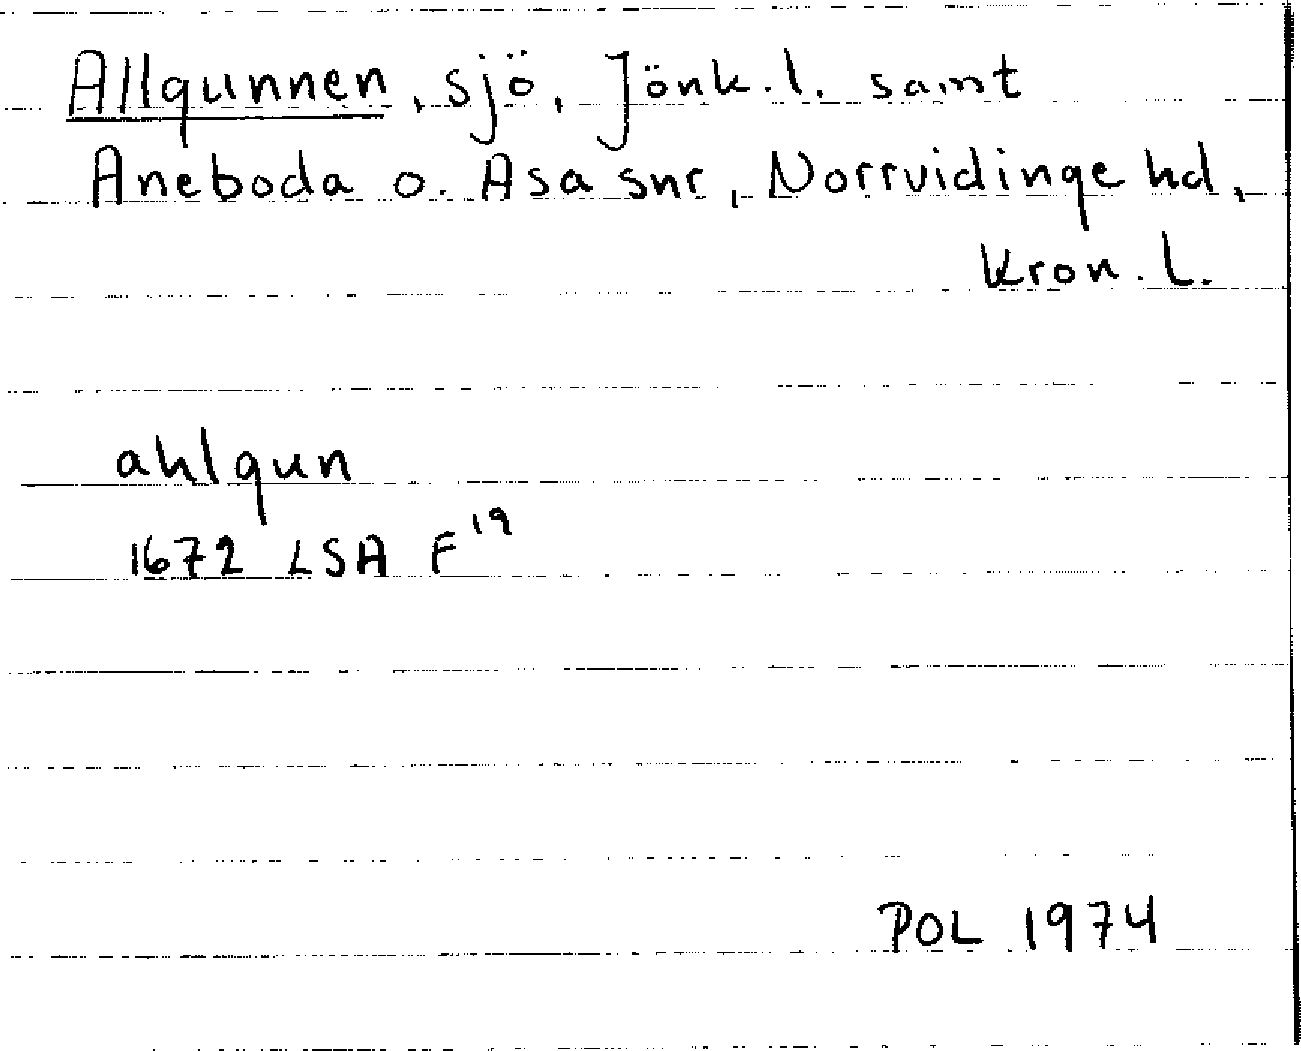 Allgunnen, sjö, Jönk.l. samt
Aneboda o. Asa snr, Norrvidinge hd,
Kron. l.
ahlgun
1672 LSA F¹⁹
POL 1974